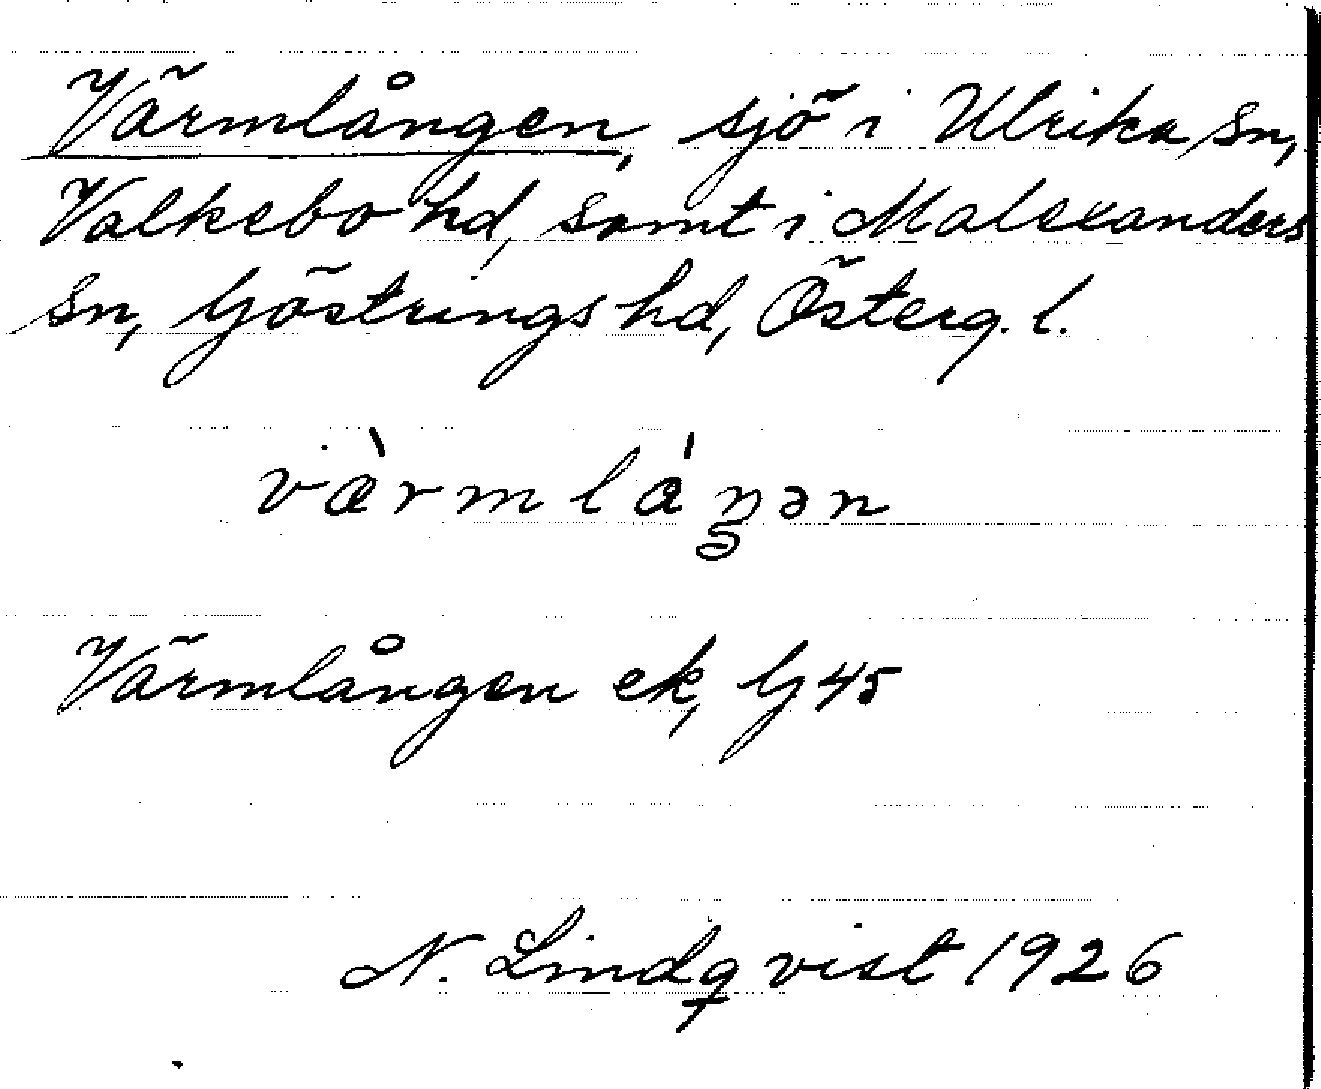 Värmlången, sjö i Ulrika sn,
Valkebo hd, samt i Malexanders
sn, Göstrings hd, Österg. l.
vàrmláŋən
Värmlången ek, G 45
N. Lindqvist 1926